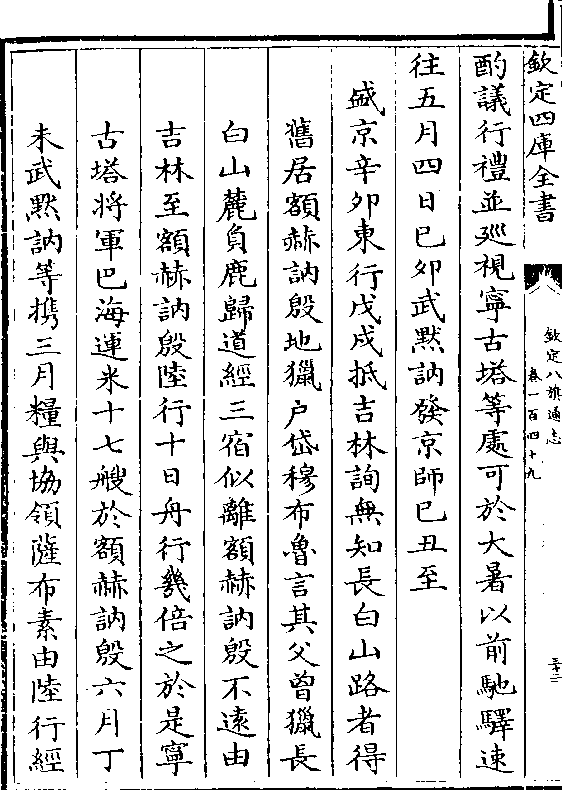 欽定四庫全書
欽定八旗通志
卷一百四十九
酌議行禮並廵視寧古塔等處可於大暑以前馳驛速
往五月四日已夘武黙訥發京師已丑至
盛京辛夘東行戊戌抵吉林詢無知長白山路者得
舊居額赫訥殷地獵户岱穆布魯言其父曾獵長
白山麓負鹿歸道經三宿似離額赫訥殷不遠由
吉林至額赫訥殷陸行十日舟行幾倍之於是寧
古塔将軍巴海運米十七艘於額赫訥殷六月丁
未武黙訥等攜三月糧與協領薩布素由陸行經